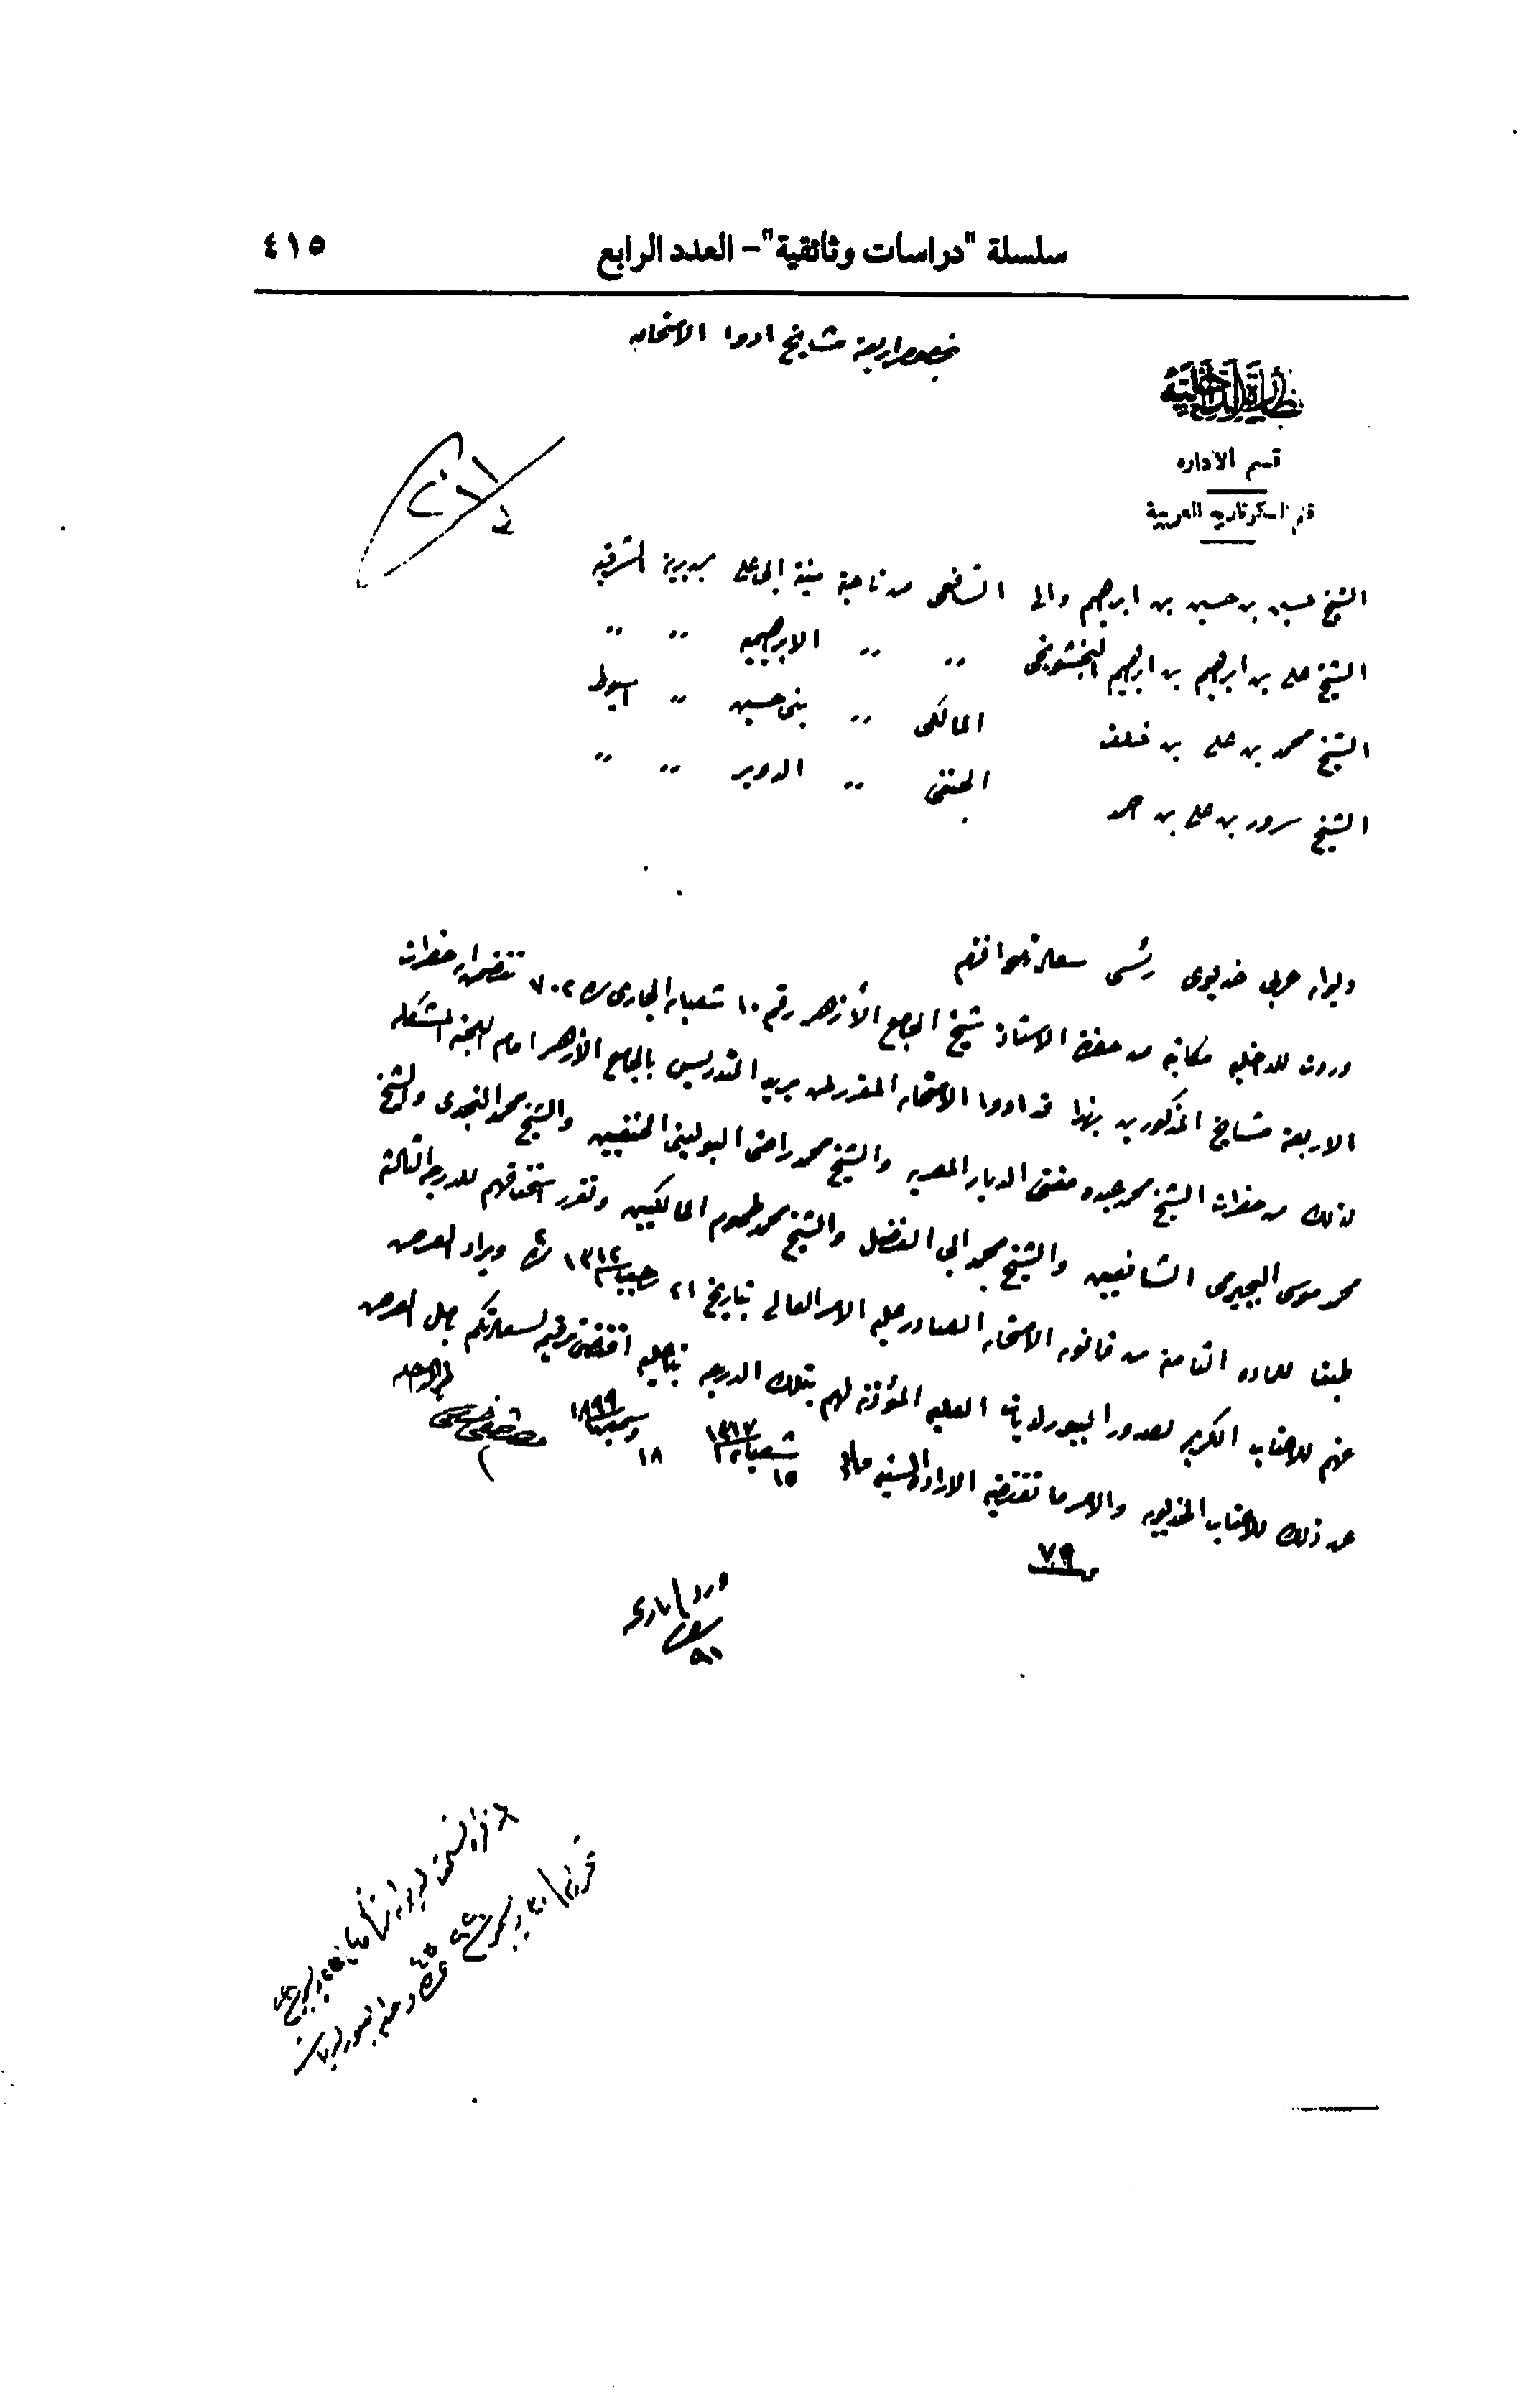 سلسلة "دراسات وثائقية" – العدد الرابع ٤١٥
بخصوص اربعة مشايخ ادوا الامتحان
نظارة الداخلية
قسم الاداره
قلم السكرتارية العربية
الشيخ حسين بن حسين بن ابرهيم والى الشافعى من ناحية منية ابى على بمديرية الشرقيه
الشيخ على بن ابرهيم بن ابرهيم ,, ,, الابرهيميه ,, ,,
الشيخ محمد بن على بن خلف المالكى ,, بنى حسين ,, اسيوط
الشيخ سرور بن على بن حمد الحنفى ,, الدوير ,, ,,
ديوان عربى خديوى رئيسى سعادتلو افندم
وردت للداخليه مكاتبه من حضرة الاستاذ شيخ الجامع الأزهر رقم ١٠ شعبان الجارى ٧٠٢ تتضمن ان حضرات
الاربعة مشايخ المذكورين بهذا قد ادوا الامتحان المقرر لمن يريد التدريس بالجامع الأزهر امام اللجنه المشكله
لذلك من حضرات الشيخ محمد عبده مفتى الديار المصريه والشيخ محمد راضى البولينى الحنفيين والشيخ محمد النجدى والشيخ
محمد موسى البجيرمى الشافعيين والشيخ محمد ابى الفضل والشيخ محمد طموم المالكيين وتقرر استحقاقهم للدرجه الثالثه
طبقا للماده الثامنه من قانون الامتحان الصادر عليه الامر العالى بتاريخ ٢١ رجب ١٣١٢ ويراد العرض
عنهم للاعتاب الكريمه لصدور البيورلديات العليه المؤذنه لهم بتلك الدرجه بناعليه اقتضى ترقيمه لسعادتكم بامل العرض
عن ذلك للاعتاب الخديويه والامر ما تقتضيه الاراده السنيه ١٥ شعبان ١٣١٧ ١٨ دسمبر ١٨٩٩
مصطفى فهمى
٧٩